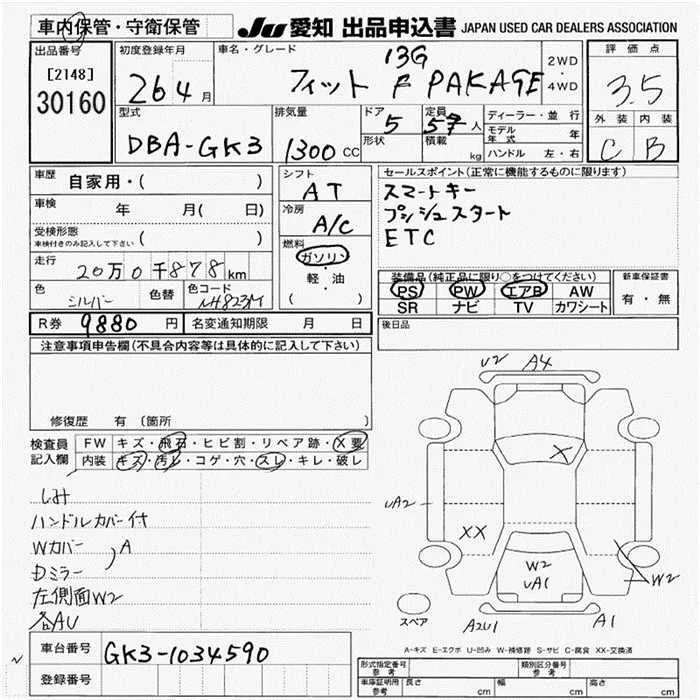 車内保管・守衛保管 JU 愛知 出品申込書 JAPAN USED CAR DEALERS ASSOCIATION
出品番号 初度登録年月 車名・グレード 評価点
[2148] 13G 2WD
30160 26 4月 フィット F PAKAGE ・ 3.5
4WD
型式 排気量 ドア 定員 ディーラー・並行 外装 内装
DBA-GK3 1300CC 5 5 人 モデル年式 年 C B
形状 積載 kg ハンドル 左・右
車歴 自家用・( ) シフト AT セールスポイント(正常に機能するものに限ります)
車検 年 月( 日) 冷房 A/C スマートキー
プッシュスタート
受検形態 ( ) 燃料 ガソリン ETC
車検付きのみ記入して下さい
走行 20万0千878km ・
軽・油 装備品(純正品に限り○をつけてください) 新車保証書
色 シルバー 色替 色コード NH823M ( ) PS PW エアB AW 有・無
SR ナビ TV カワシート
R券 9880円 名変通知期限 月 日 後日品
注意事項申告欄(不具合内容等は具体的に記入して下さい)
U2 A4
修復歴 有 〔箇所 〕
検査員 FW キズ・飛石・ヒビ割・リペア跡・X要
記入欄 内装 キズ・汚レ・コゲ・穴・スレ・キレ・破レ
X
シミ
UA2
ハンドルカバー付
XX
Wカバー A
W2
Dミラー
UA1
W2
左側面W2
各AU
スペア A2U1 A1
車台番号 GK3-1034590
A-キズ E-エクボ U-凹み W-補修跡 S-サビ C-腐食 XX-交換済
登録番号
形式指定番号 参考 類別区分番号 参考
車庫証明用 参考 長さ cm 幅 cm 高さ cm